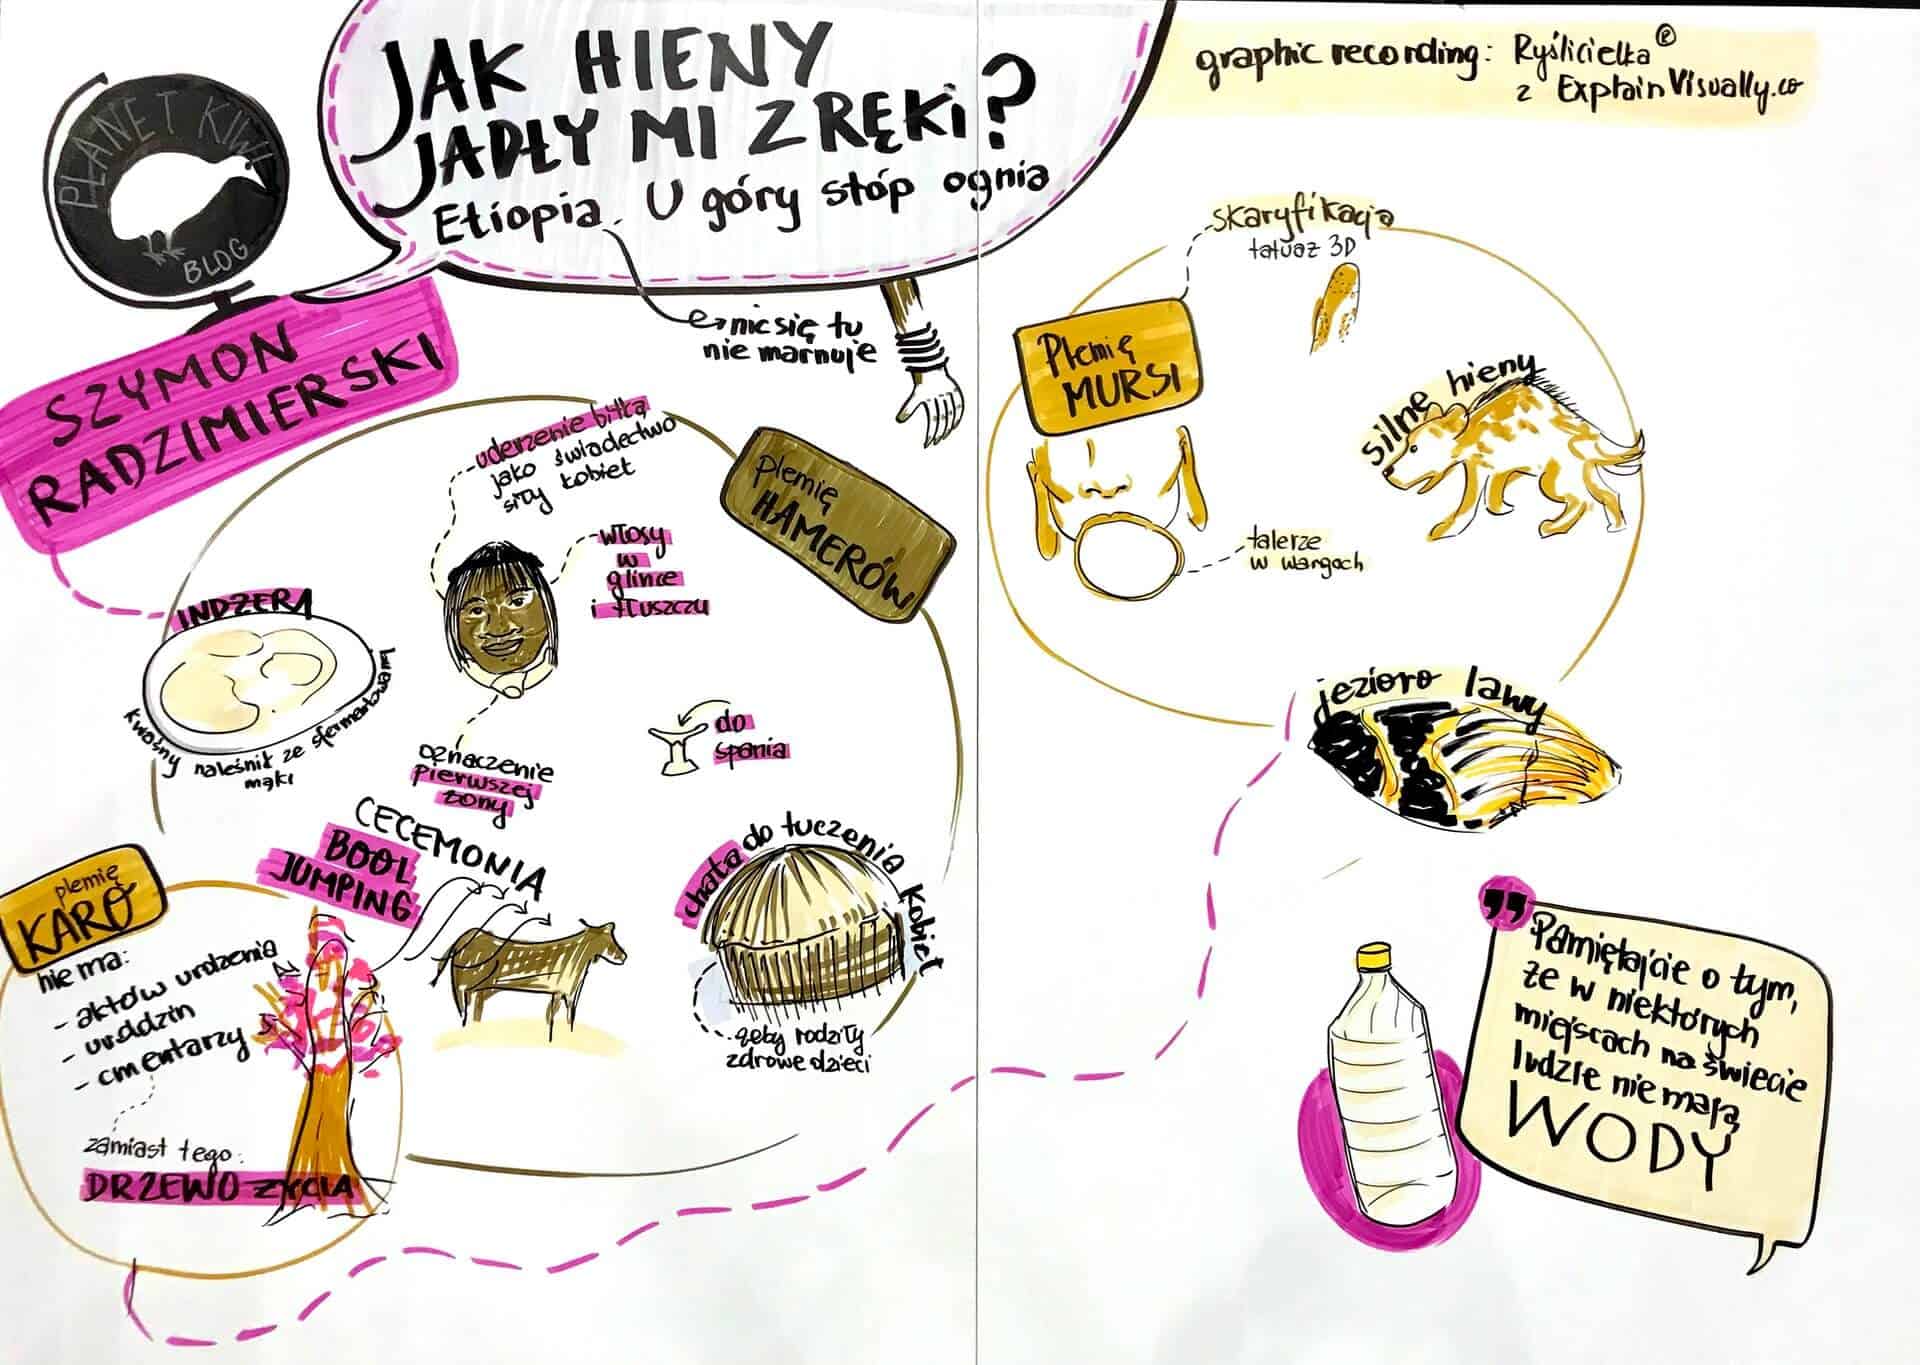 JAK HIENY
JADŁY MI Z RĘKI?
Etiopia. U góry stóp ognia
graphic recording: Ryślicielka®
z ExplainVisually.co
PLANET KIWI
BLOG
SZYMON
RADZIMIERSKI
nic się tu
nie marnuje
plemię
HAMERÓW
uderzenie bitką
jako świadectwo
siły kobiet
włosy
w
glince
i tłuszczu
INDŻERA
kwaśny naleśnik ze sfermentowanej
mąki
oznaczenie
pierwszej
żony
do
spania
CECEMONIA
BOOL
JUMPING
chata do tuczenia kobiet
żeby rodziły
zdrowe dzieci
plemię
KARO
nie ma:
- aktów urodzenia
- urodzin
- cmentarzy
zamiast tego:
DRZEWO ŻYCIA
Plemię
MURSI
skaryfikacja
tatuaż 3D
silne hieny
talerze
w wargach
jezioro lawy
Pamiętajcie o tym,
że w niektórych
miejscach na świecie
ludzie nie mają
WODY